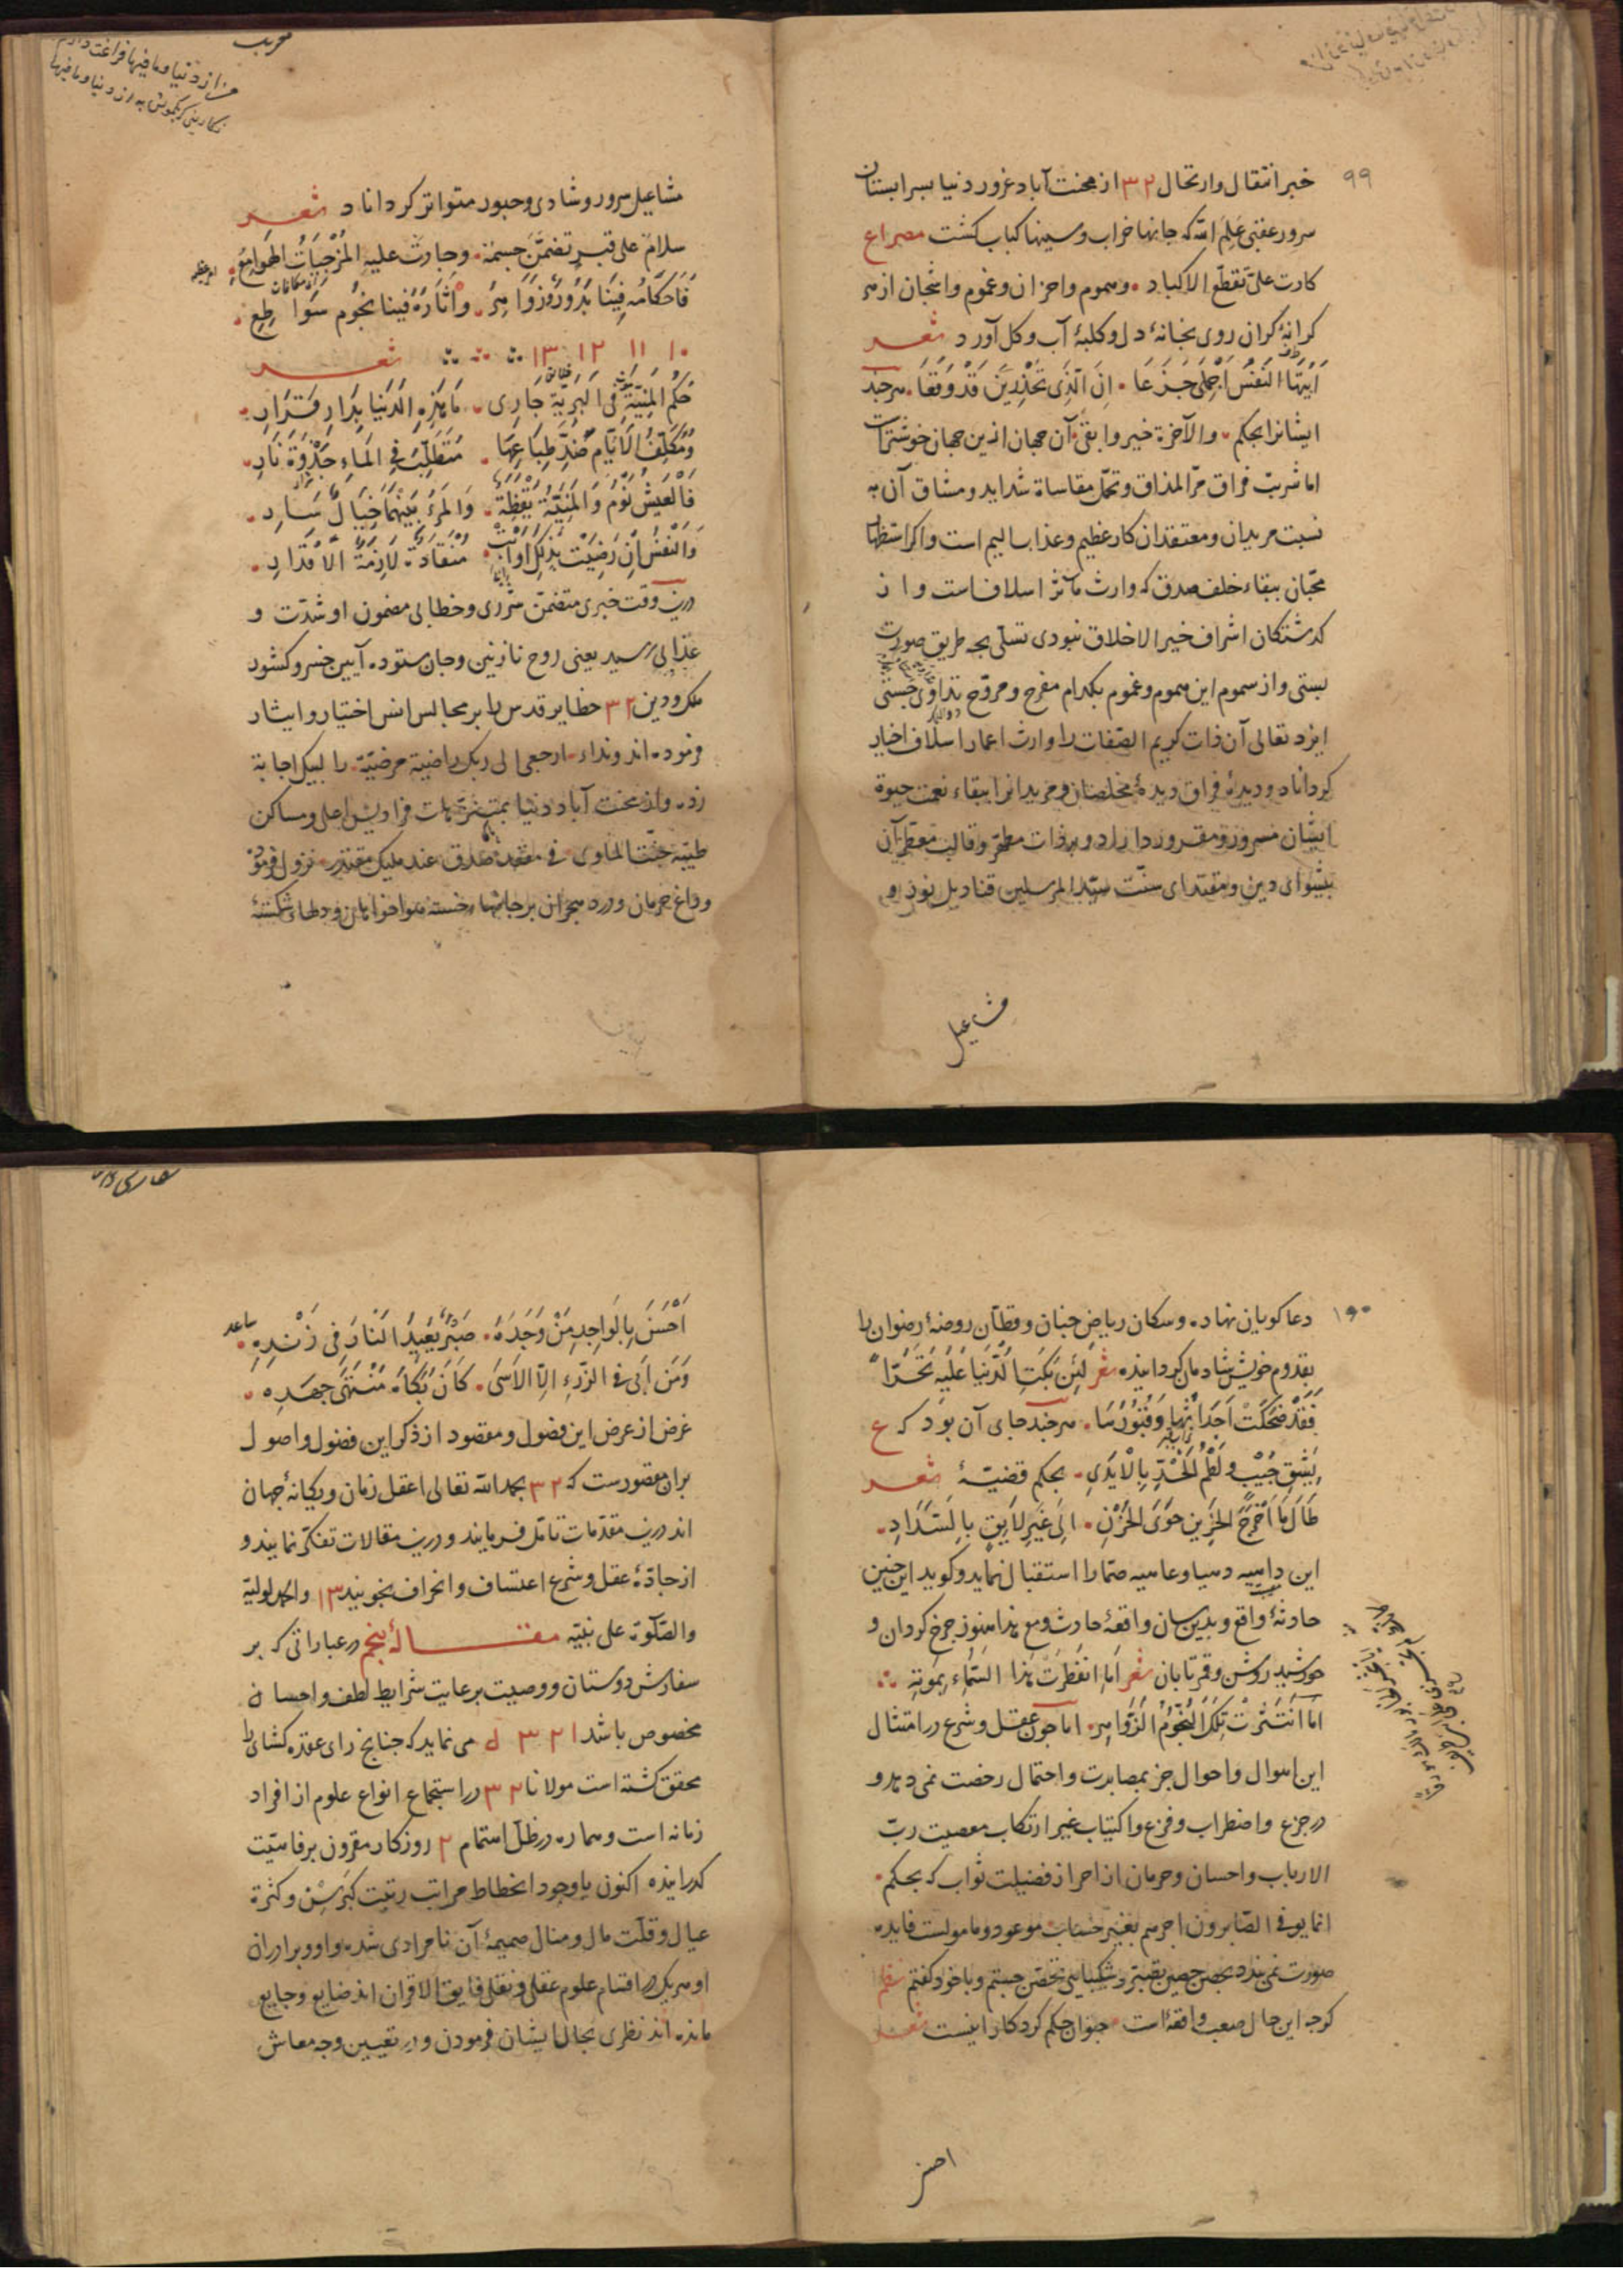 ۹۹
خبر انتقال وارتحال ۳۲ از محنت آباد غرور دنیا بسرابستان
سرور عقبی علم الله که جانها خراب وسینها کباب کشت مصراع
کادت علی تقطّع الاکباد . وهموم واحزان وغموم واشجان از هر
کرانهٔ کران روی بخانهٔ دل وکلبهٔ آب وکل آورد شعر
اَیَّتُها النَفْسُ اَجْمِلی جَزَعَا . اِنَّ الّذی تَحْذَرِینَ قَدْ وَقَعَا . هرچند
ایشانرا بحکم . والآخرة خیر وابقی . آن جهان ازین جهان خوشترست
اما شربت فراق مرّ المذاق وتحمّل مقاساة شداید ومشاق آن به
نسبت مریدان ومعتقدان کار عظیم وعذاب الیم است واکر استظهار
محبّان ببقاء خلف صدق که وارث مآثر اسلافست واز
کذشتکان اشراف خیر الاخلاق نبودی تسلّی بچه طریق صورت
بستی واز سموم این هموم وغموم بکدام مفرح ومروّح تداوی جستی
ایزد تعالی آن ذات کریم الصّفات را وارث اعمار اسلاف اخیار
کرداناد ودیدهٔ فراق دیدهٔ مخلصان ومریدانرا ببقاء نعمت حیوة
ایشان مسرور ومقرور داراد وبر ذات مطهّر وقالب معطّر آن
پیشوای دین ومقتدای سنّت سیّد المرسلین قنادیل نور و
مشاعیل
مشاعیل سرور وشادی وحبور متواتر کرداناد شعر
سلامٌ علی قبرٍ تضمّنَ جسمَهُ . وجادت علیهِ المُزْجِیَاتُ الهَوامِعُ .
فَاَحکَامُهُ فِینَا بُدُورٌ زَوَاهِرٌ . وآثَارُهُ فینا نجُومٌ سَوَاطِعُ .
۱۰ ۱۱ ۱۲ ۱۳ شعر
حُکْمُ المَنِیَّةِ فی البَرِیَّةِ جَارِی . مَا هٰذِهِ الدُنیَا بِدَارِ قَرَارِ .
وَمُکَلِّفُ الاَیّامِ ضِدَّ طِبَاعِهَا . مُتَطَلِّبٌ فِی المَاءِ جَذْوَةَ نَارِ .
فَالْعَیْشُ نَوْمٌ وَالمَنِیَّةُ یَقْظَةٌ . وَالمَرءُ بَیْنَهُمَا خَیَالٌ سَارِ .
وَالنَفْسُ اِنْ رَضِیَتْ بِذٰلِکَ اَوْ اَبَتْ . مُنْقَادَةٌ لَازِمَةُ الاَقْدَارِ .
درین وقت خبری متضمّن شرری وخطابی مضمون او شدّت و
عذابی رسید یعنی روح نازنین وجان ستوده آیین خسرو کشور
ملک ودین ۳۲ حظایر قدس را بر مجالس انس اختیار وایثار
فرموده اند ونداء . ارجعی الی ربک راضیة مرضیّة . را لبیک اجابة
زده واز محنت آباد دنیا بمتنزّهات فرادیس اعلی ومساکن
طیّبه جنّت الماوی . فی مقعد صدق عند ملیک مقتدر . نزول فرمود
وداغ حرمان ودرد هجران بر جانهاء خسته هواخواهان ودلهاء شکستهٔ
۱۰۰
دعا کویان نهاده وسکان ریاض جنان وقطّان روضهٔ رضوان را
بقدوم خویش شادمان کردانیده شعر لَئِنْ بَکَتِ الدُّنْیَا عَلَیْهِ تَحَسُّرًا
فَقَدْ ضَحِکَتْ اَجْدَاثُهَا وَقُبُورُهَا . هرچند جای آن بود که ع
بِشَقِّ جُیْبٍ ولَطْمِ الخَدِّ بِالاَیْدِی . بحکم قضیّهٔ شعر
طَالَ مَا اَخْرَجَ الحَزِینَ جَوَی الحُزْنِ . اِلَی غَیْرِ لَایِقٍ بِالسَّدَادِ .
این داهیه دهیا وعامیه صمّا را استقبال نماید وکوید این چنین
حادثهٔ واقع وبدین سان واقعهٔ حادث ومع هذا هنوز چرخ کردان و
خورشید روشن وقمر تابان شعر اَمَا انفَطَرَتْ هٰذا السَّمَاءُ بِمَوتِهِ
اما انْتَثَرَتْ تِلْکَ النُّجُومُ الزَّوَاهِرُ . اما چون عقل وشرع در امتثال
این اهوال واحوال جز بمصابرت واحتمال رخصت نمی دهد و
در جزع واضطراب وفزع واکتیاب غیر ارتکاب معصیت ربّ
الارباب واحسان وحرمان از احراز فضیلت ثواب که بحکم .
انما یوفی الصّابرون اجرهم بغیر حساب . موعود ومامولست فایده
صورت نمی بندد بحصن حصین تصبّر وشکیبایی تحصّن جستم وبا خود کفتم نظم
کرچه این حال صعب واقعه است . چتوان حکم کردکار اینست شعر
احسن
اَحْسَنَ بِالوَاجِدِ مِنْ وَجْدِهِ . صَبْرٌ یُعِیدُ النَارَ فِی زَنْدِهِ .
وَمَن اَبَی فِی الرُّزءِ اِلّا الاَسَی . کَانَ بُکَاهُ مُنْتَهَی جُهْدِهِ .
غرض از عرض این فضول ومقصود از ذکر این فصول واصول
بران مقصورست که ۳۲ بحمد الله تعالی اعقل زمان ویکانهٔ جهان
اند درین مقدّمات تامّل فرمایند ودرین مقالات تفکّر نمایند و
از جادّهٔ عقل وشرع اعتساف وانحراف نجویند ۱۳ والحمد لولیّه
والصّلوة علی نبیّه مقالهٔ پنجم در عباراتی که بر
سفارش دوستان ووصیت برعایت شرایط لطف واحسان
مخصوص باشد ۳۲۱ می نماید که چنانچ رای عقده کشای را
محقق کشته است مولانا ۳۲ در استجماع انواع علوم از افراد
زمانه است وهماره در ظلّ اهتمام ۲ روزکار مقرون برفاهیّت
کذرانیده اکنون باوجود انحطاط مراتب رتبت کبر سِن وکثرة
عیال وقلّت مال ومنال ضمیمهٔ آن نامرادی شده واو وبرادران
او هر یک در اقسام علوم عقلی ونقلی فایق الاقران اند ضایع وجایع
مانده اند نظری بحال ایشان فرمودن ودر تعیین وجه معاش